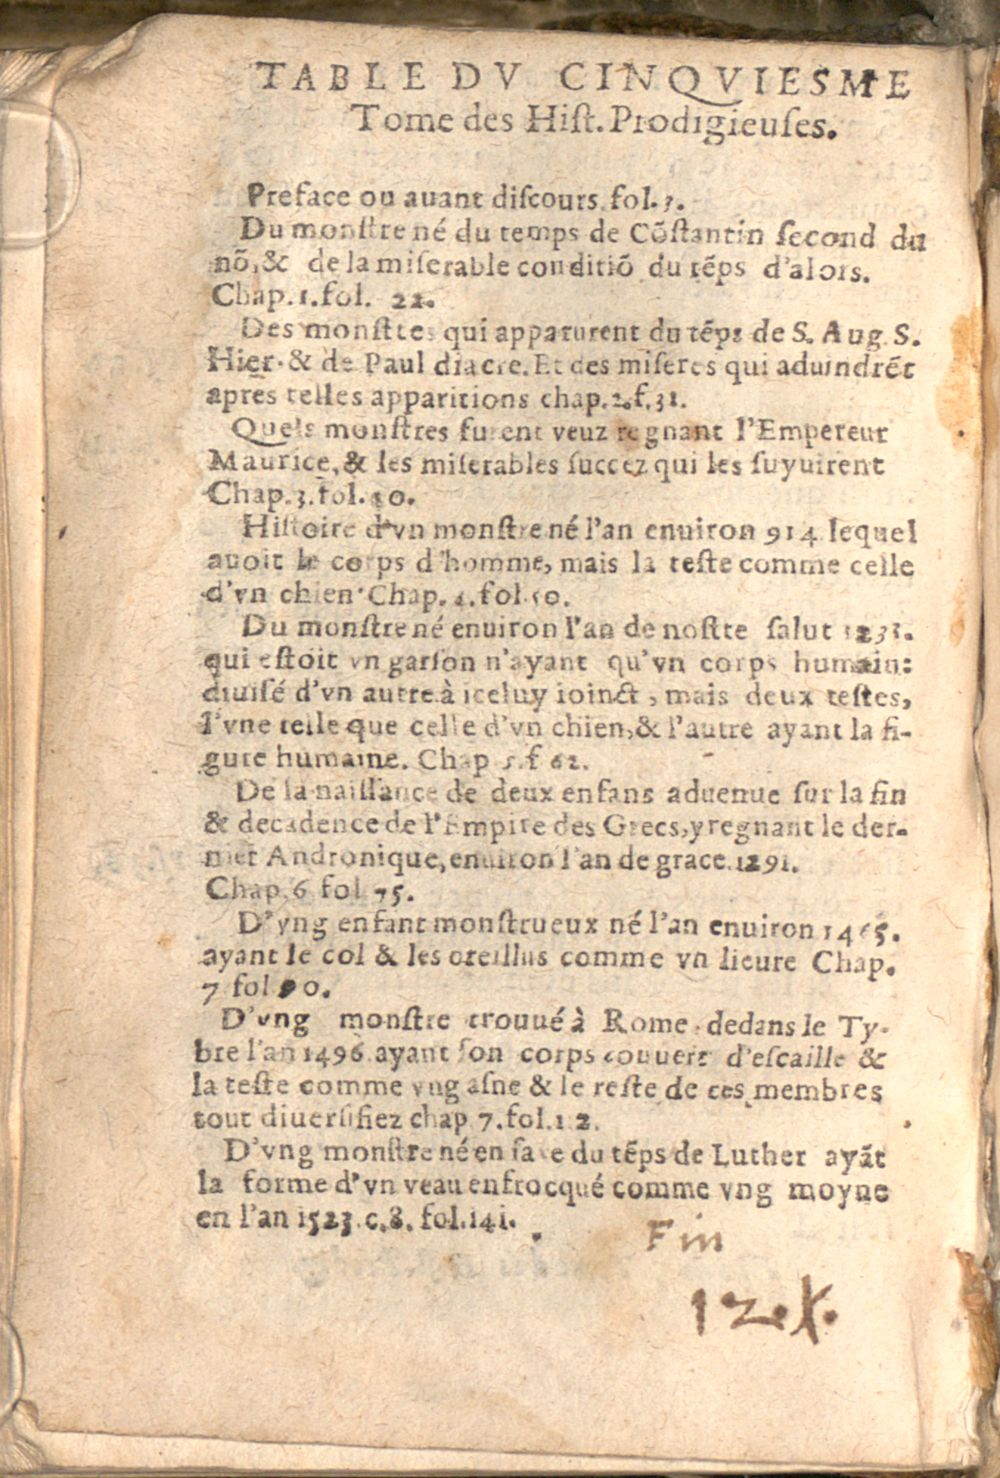 TABLE DV CINQVIESME
Tome des Hiſt. Prodigieuſes.
Preface ou auant diſcours. fol. 3.
Du monſtre né du temps de Cõſtantin ſecond du
nõ, & de la miſerable conditiõ du tẽps d'alors.
Chap. 1. fol. 22.
Des monſtres qui apparurent du tẽps de S. Aug. S.
Hier. & de Paul diacre. Et des miſeres qui aduindrẽt
apres telles apparitions chap. 2. f. 31.
Quels monſtres furent veuz regnant l'Empereur
Maurice, & les miſerables ſuccez qui les ſuyuirent
Chap. 3. fol.
Hiſtoire d'vn monſtre né l'an enuiron 914 lequel
auoit le corps d'homme, mais la teſte comme celle
d'vn chien. Chap. 4. fol.
Du monſtre né enuiron l'an de noſtre ſalut 1231.
qui eſtoit vn garſon n'ayant qu'vn corps humain:
diuiſé d'vn autre à iceluy ioinct, mais deux teſtes,
l'vne telle que celle d'vn chien, & l'autre ayant la fi-
gure humaine. Chap 5. f 62.
De la naiſſance de deux enfans aduenue ſur la fin
& decadence de l'Empire des Grecs, y regnant le der-
nier Andronique, enuiron l'an de grace. 1291.
Chap. 6 fol 75.
D'yng enfant monſtrueux né l'an enuiron
ayant le col & les oreillus comme vn lieure Chap.
7 fol 90.
D'vng monſtre trouué à Rome dedans le Ty-
bre l'an 1496 ayant ſon corps couuert d'eſcaille &
la teſte comme vng aſne & le reſte de ces membres
tout diuerſifiez chap 7. fol.
D'vng monſtre né en ſaxe du tẽps de Luther ayãt
la forme d'vn veau enfrocqué comme vng moyne
en l'an 1523. c. 8. fol. 141.
Fin